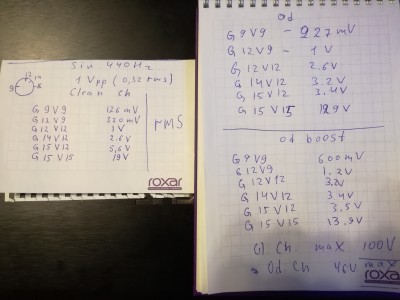 Sin 440Hz
1 Vpp (0,32 rms)
Clean ch
12
9
G 9 V9 126 mV
G 12 V9 320 mV
G 12 V12 1 V
G 14 V12 2.6 V
G 15 V12 5,6 V
G 15 V15 19 V
rms
roxar
Od
G 9 V9 - 227 mV
G 12 V9 - 1 V
G 12 V12 2.6 V
G 14 V12 3.2 V
G 15 V12 3.4 V
G 15 V15 12.9 V
Od boost
G 9 V9 600 mV
G 12 V9 1.2 V
G 12 V12 3.2 V
G 14 V12 3.4 V
G 15 V12 3.5 V
G 15 V15 13.9 V
Cl Ch max 100 V
Od. Ch 46 V max
roxa